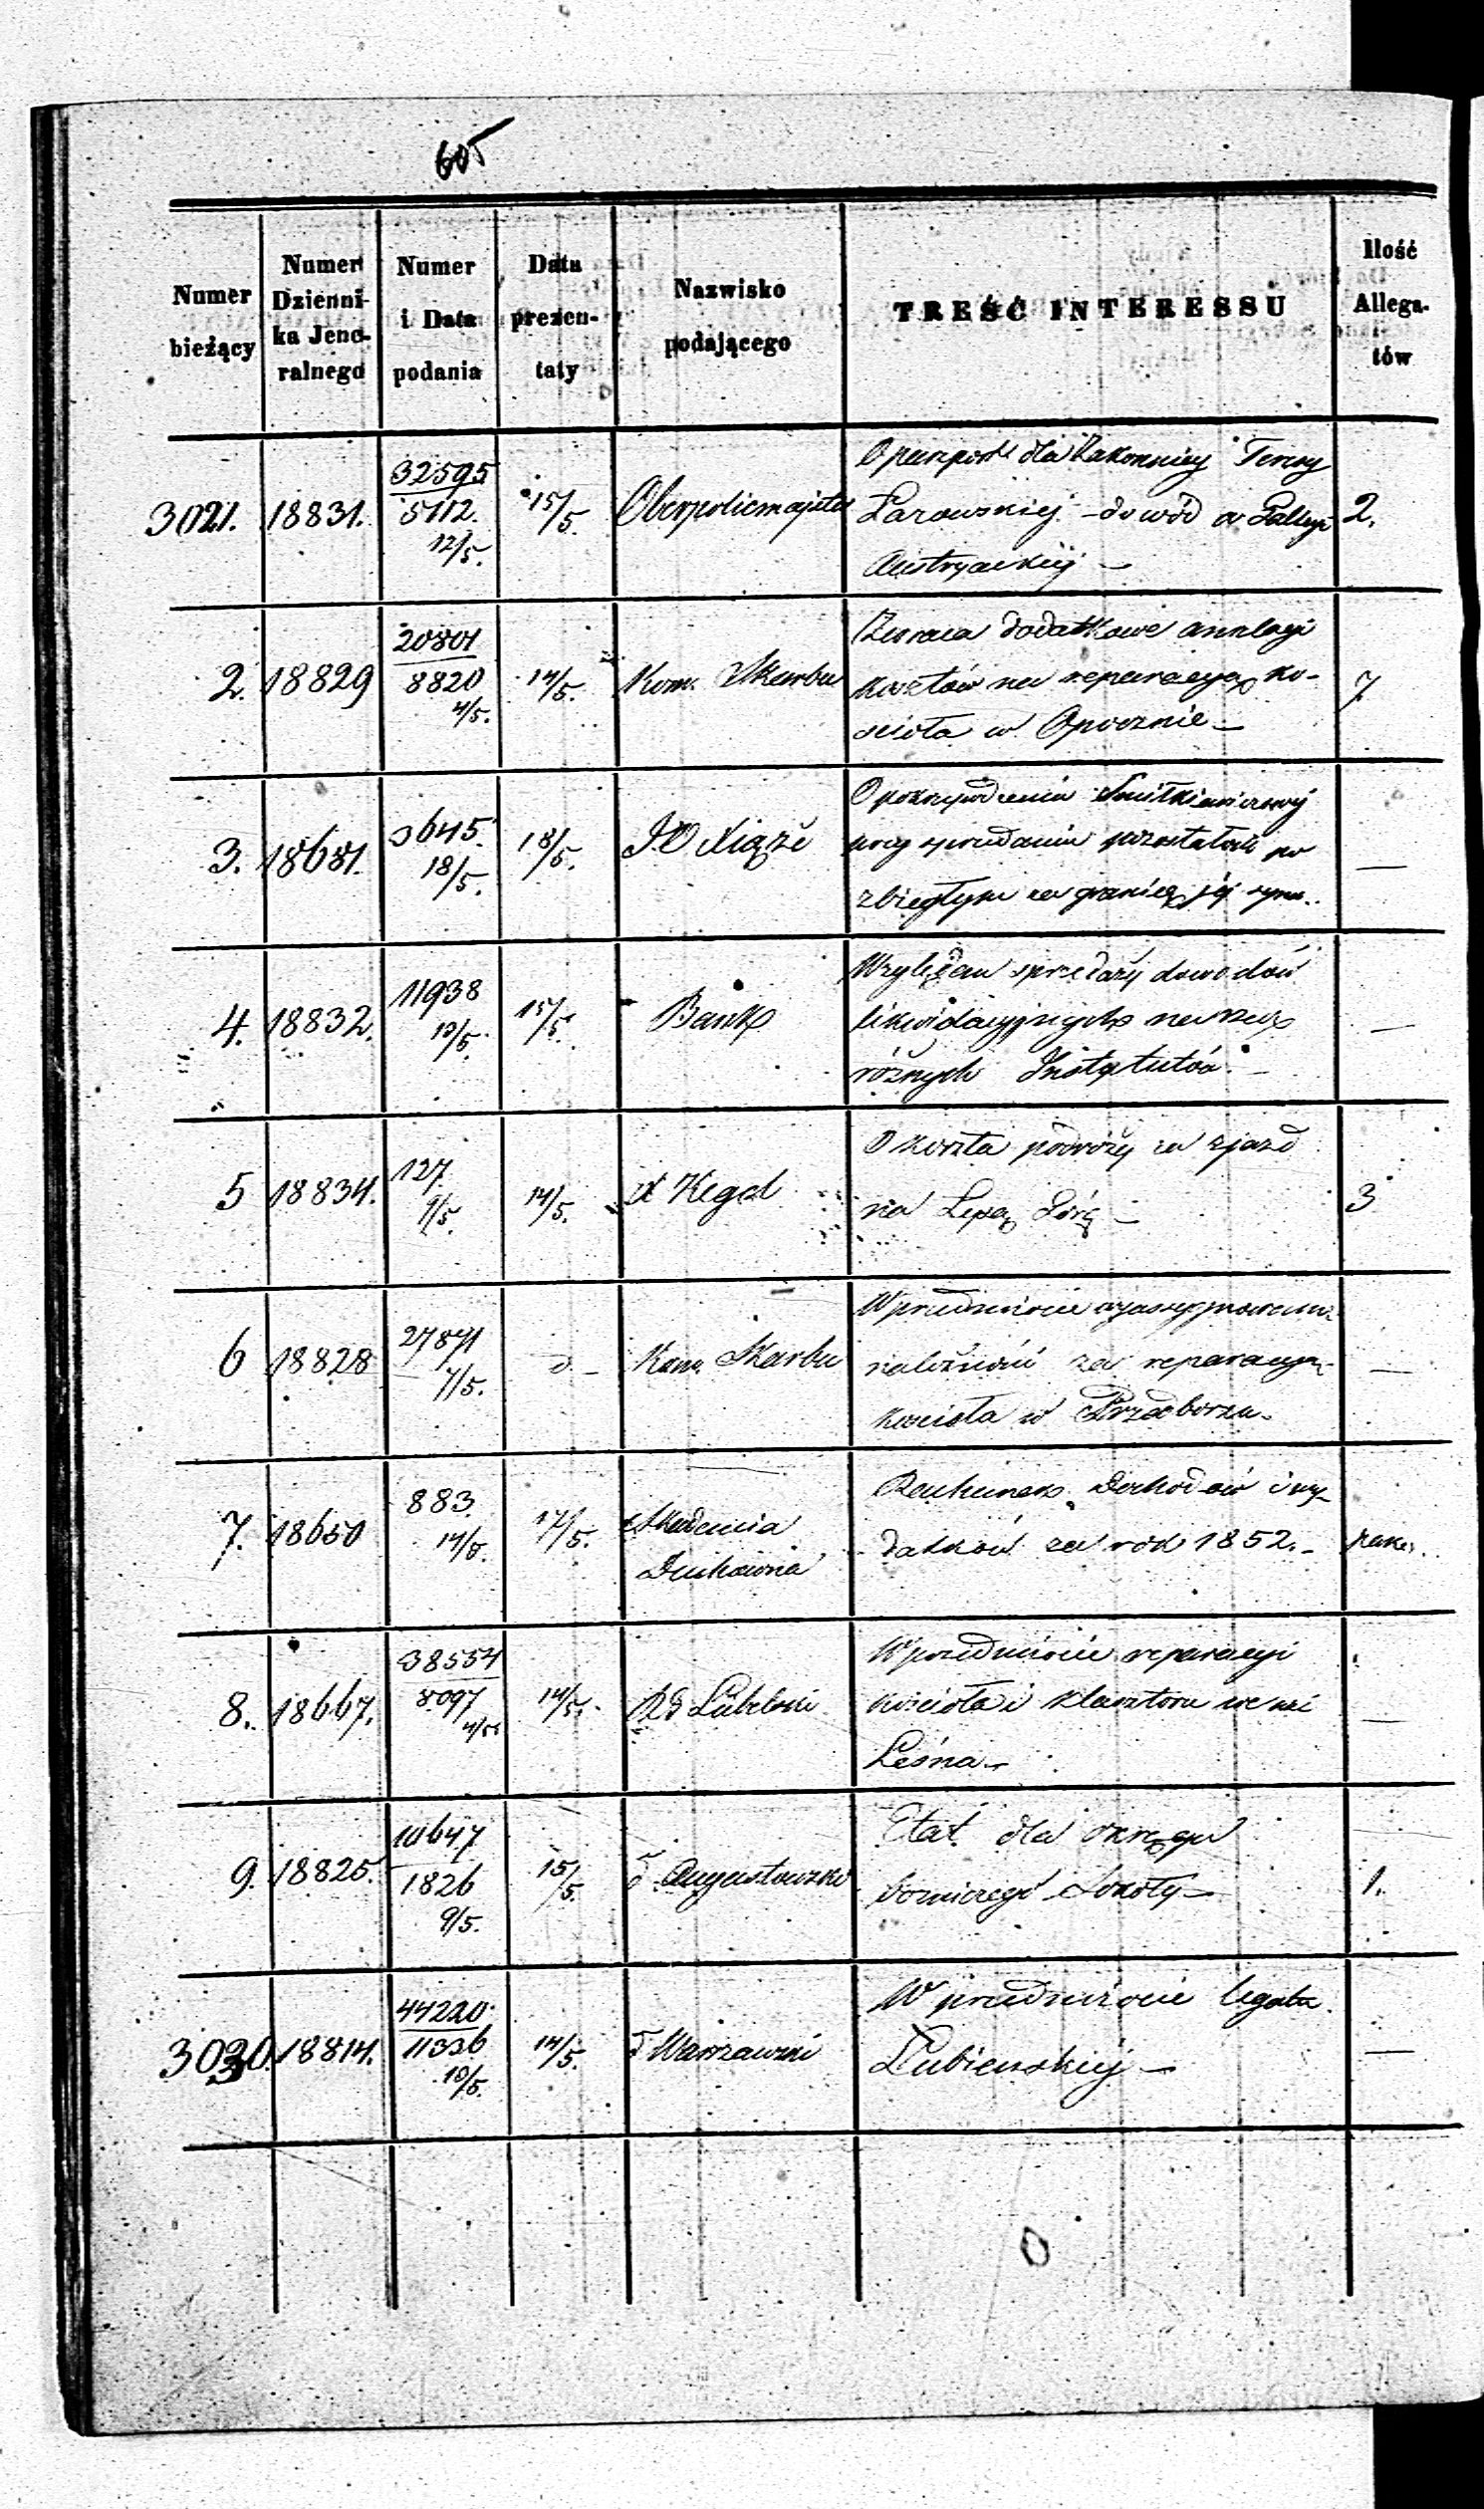 605
Numer bieżący
Numer Dzienni-ka Jene-ralnego
Numer i Data podania
Data prezen-taty
Nazwisko podającego
TREŚĆ INTERESSU
Ilość Allega-tów
3021. 18831. 32595 5112. 12/5. 15/5. Oberpolicmajster
O paszport dla Zakonnicy Teresy
Łazowskiej - dowód w Gallicyi 2.
Austryackiej —
2. 18829 20801 8820 4/5. 14/5. Kom. Skarbu
Zwraca dodatkowe anszlagi
kosztów na reparacyą ko- 7
ścioła w Opocznie —
3. 18681. 3645. 18/5. 18/5. JO Xiąże
O pokrzywdzeniu
przy sprzedaniu pozostałości po —
zbiegłym za granicę jej synu.
4. 18832. 11938 12/5. 15/5. Bank
Względem sprzedaży dowodów
likwidacyjnych na rzecz —
różnych Instytutów. —
5 18834. 127. 9/5. 14/5. X Kegel
O koszta podróży za zjazd
na Łysą Górę — 3
6 18828 27871 7/5. d — Kom. Skarbu
W przedmiocie
należności za reparacyą —
kościoła w Przedborzu.
7. 18650 883. 14/5. 17/5. Akademia Duchowna
Rachunek Dochodów i wy-
datków za rok 1852. — paka.
8. 18667. 38554 8097 4/5. 14/5. Rd Lubelski
W przedmiocie reparacyi
kościoła i klasztoru we wsi —
Leśna —
9. 18825. 10647 1826 9/5. 15/5. d Augustowski
Etat dla okręgu
bożniczego Sokoły — 1.
3030. 18814. 44220 11336 10/5. 14/5. d Warszawski
W przedmiocie legatu
Łubieńskiej — —